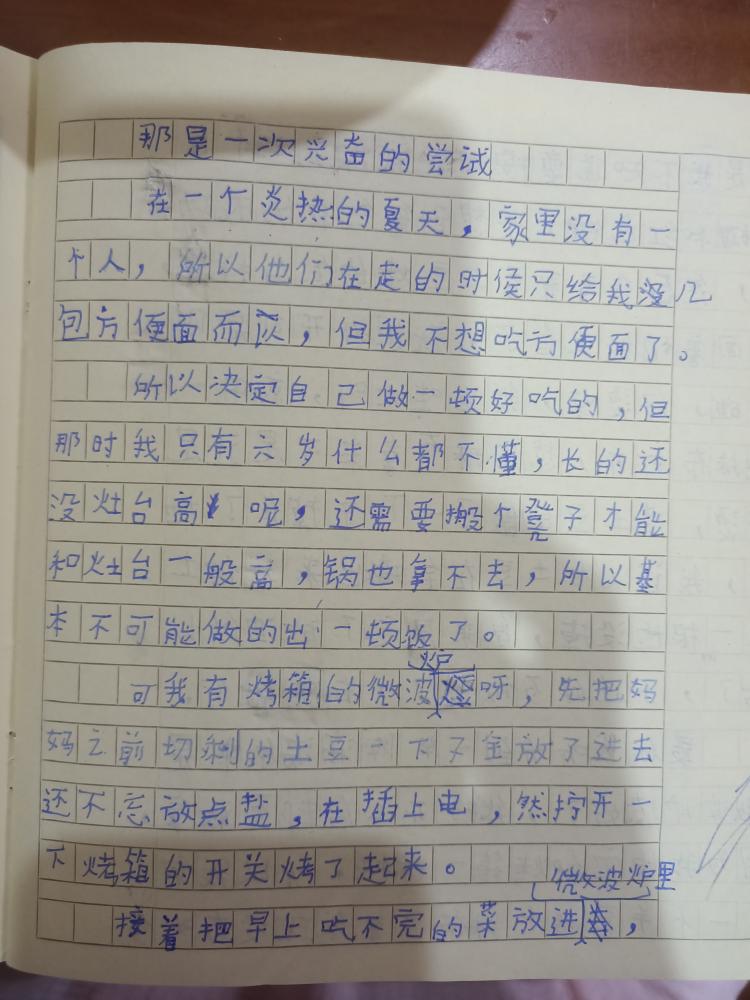 那是一次兴奋的尝试
在一个炎热的夏天，家里没有一
个人，所以他们在走的时侯只给我没几
包方便面而以，但我不想吃方便面了。
所以决定自己做一顿好吃的，但
那时我只有六岁什么都不懂，长的还
没灶台高 呢，还需要搬个凳子才能
和灶台一般高，锅也拿不去，所以基
本不可能做的出一顿饭了。
可我有烤箱的微波炉呀，先把妈
妈之前切剩的土豆一下子全放了进去
还不忘放点盐，在插上电，然拧开一
下烤箱的开关烤了起来。
接着把早上吃不完的菜放进微波炉里，